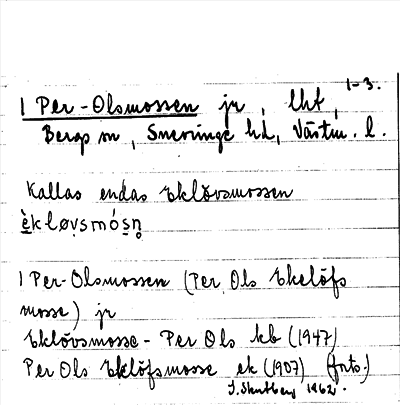 1-3.
1 Per-Olsmossen jr, lht,
Bergs sn, Snevringe hd, Västm. l.
Kallas endas Eklövsmossen
èkløvsmósn̥
1 Per-Olsmossen (Per Ols Ekelöfs
mosse) jr
Eklövsmosse - Per Ols kb (1947)
Per Ols Eklöfsmosse ek (1907) (fnts.)
1962.